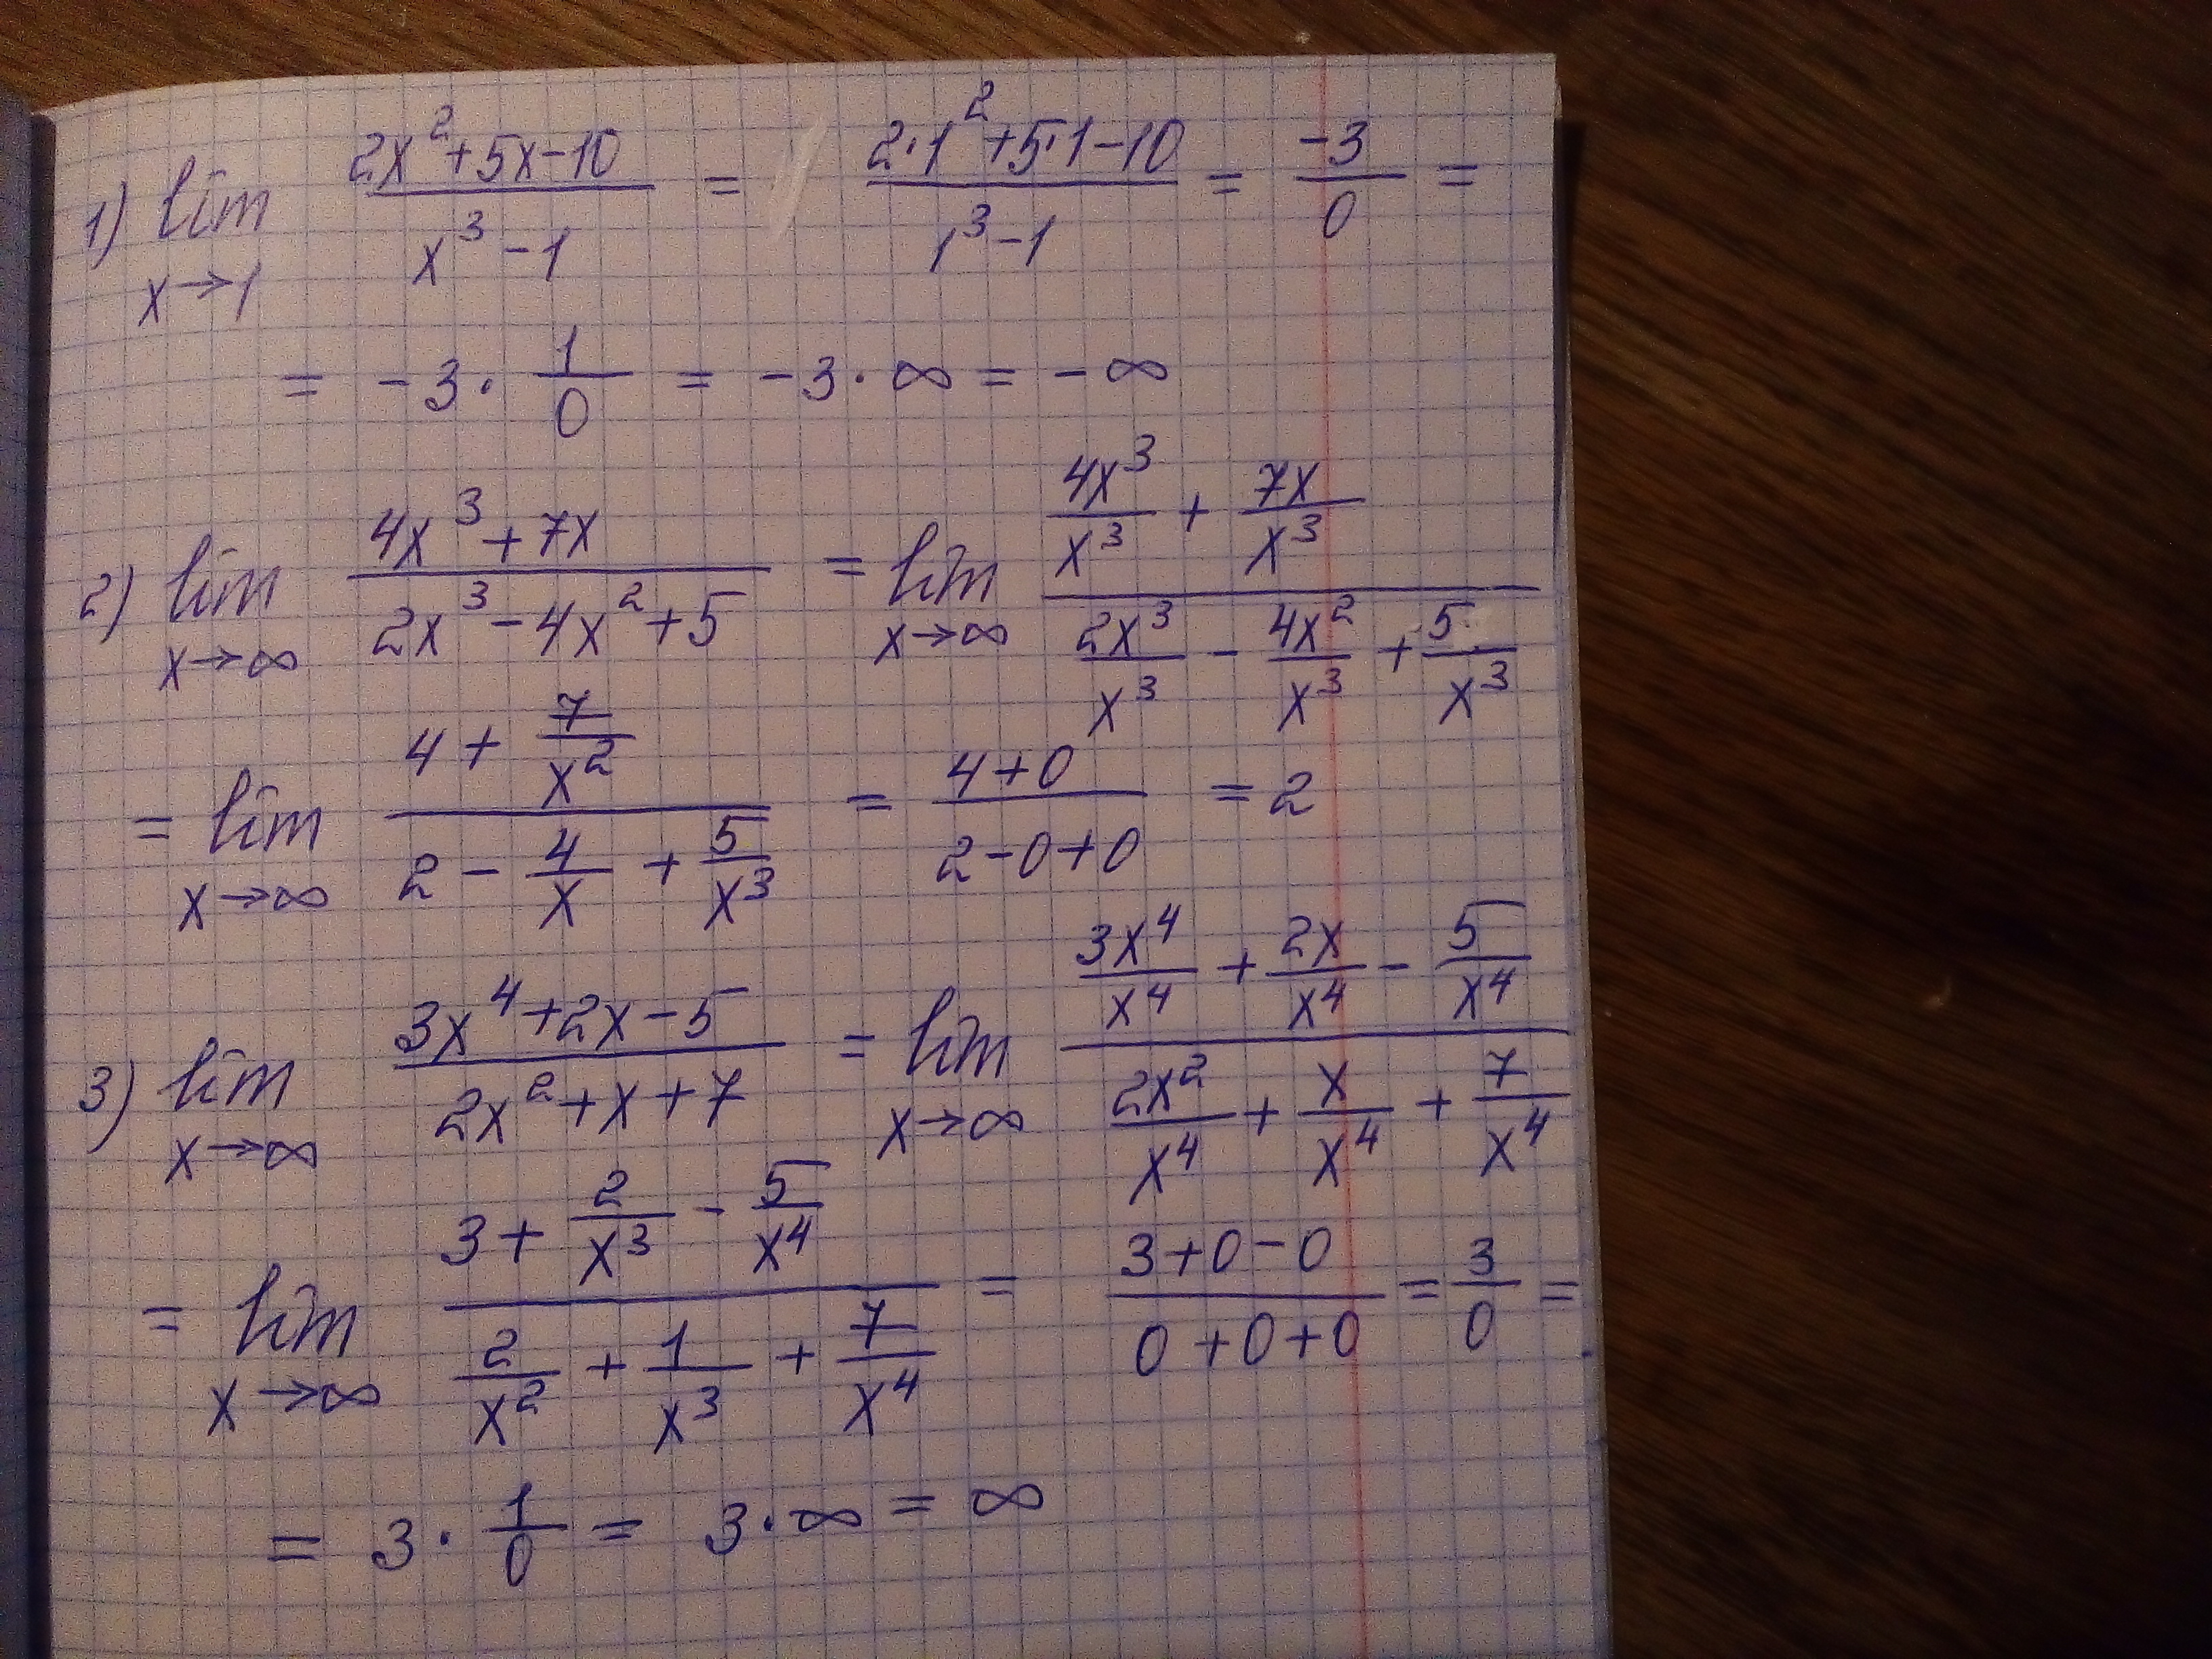 1) lim x→1 (2x²+5x-10)/(x³-1) = (2·1²+5·1-10)/(1³-1) = -3/0 =
= -3 · 1/0 = -3 · ∞ = -∞
2) lim x→∞ (4x³+7x)/(2x³-4x²+5) = lim x→∞ (4x³/x³ + 7x/x³)/(2x³/x³ - 4x²/x³ + 5/x³)
= lim x→∞ (4 + 7/x²)/(2 - 4/x + 5/x³) = (4+0)/(2-0+0) = 2
3) lim x→∞ (3x⁴+2x-5)/(2x²+x+7) = lim x→∞ (3x⁴/x⁴ + 2x/x⁴ - 5/x⁴)/(2x²/x⁴ + x/x⁴ + 7/x⁴)
= lim x→∞ (3 + 2/x³ - 5/x⁴)/(2/x² + 1/x³ + 7/x⁴) = (3+0-0)/(0+0+0) = 3/0 =
= 3 · 1/0 = 3 · ∞ = ∞